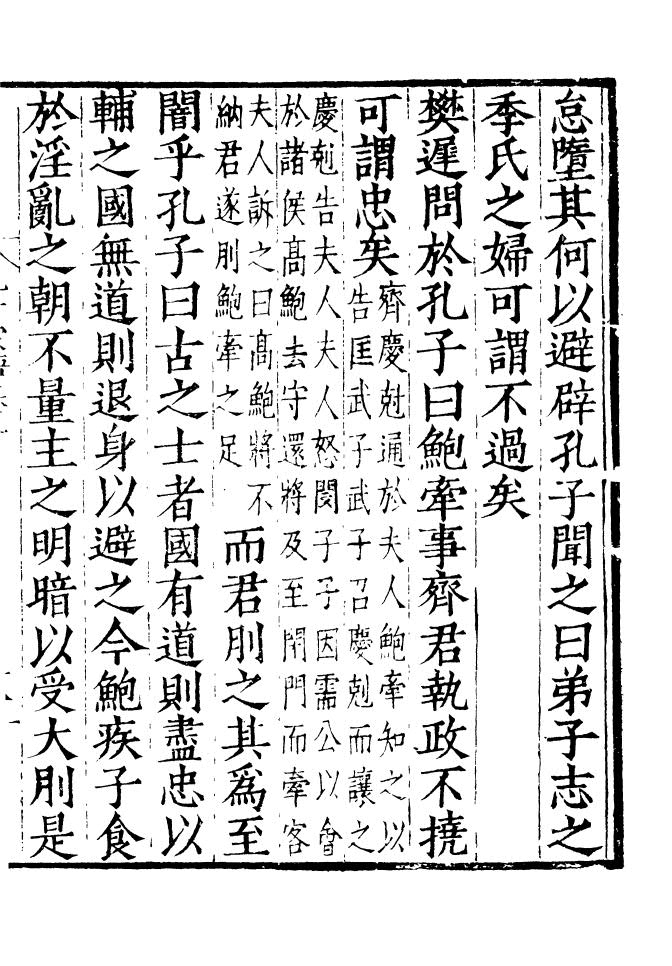 怠墮其何以避辟孔子聞之曰弟子志之
季氏之婦可謂不過矣
樊遲問於孔子曰鮑牽事齊君執政不撓
可謂忠矣齊慶尅通於夫人鮑牽知之以
告匡武子武子召慶剋而讓之
慶剋告夫人夫人怒閔子子因需公以會
於諸侯髙鮑去守還將及至閉門而牽客
夫人訴之曰髙鮑將不
納君遂刖鮑牽之足而君刖之其爲至
闇乎孔子曰古之士者國有道則盡忠以
輔之國無道則退身以避之今鮑疾子食
於淫亂之朝不量主之明暗以受大刖是